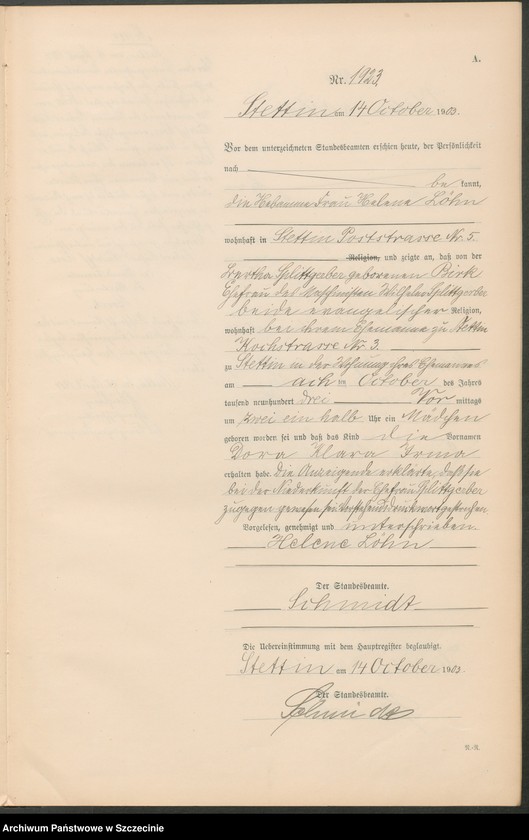 A.
Nr. 1923
Stettin am 14 October 1903.
Vor dem unterzeichneten Standesbeamten erschien heute, der Persönlichkeit
nach
be kannt,
die Hebamme Frau Helene Löhn
wohnhaft in Stettin Poststrasse Nr. 5.
Religion, und zeigte an, daß von der
Bertha Splittgerber geborenen Birk
Ehefrau des Maschinisten Wilhelm Splittgerber
beide evangelischer Religion,
wohnhaft bei ihrem Ehemanne zu Stettin
Kochstrasse Nr. 3.
zu Stettin in der Wohnung ihres Ehemannes
am October des Jahres
tausend neunhundert drei Vor mittags
um zwei ein halb Uhr ein Mädchen
geboren worden sei und daß das Kind die Vornamen
Dora Klara Irma
erhalten habe. Die Anzeigende erklärte, daß sie
bei der Niederkunft der Ehefrau Splittgerber
zugegen gewesen sei
Vorgelesen, genehmigt und unterschrieben
Helene Löhn
Der Standesbeamte.
Schmidt
Die Uebereinstimmung mit dem Hauptregister beglaubigt.
Stettin am 14 October 1903.
Der Standesbeamte.
Schmidt
R.-R.
Archiwum Państwowe w Szczecinie